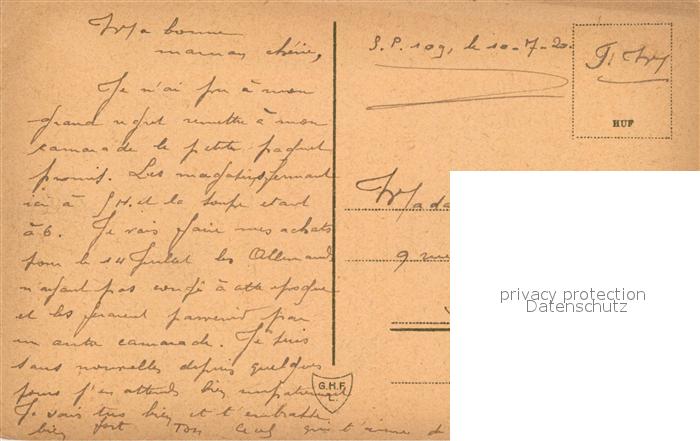 Ma bonne
maman chérie,
Je n'ai pu à mon
grand regret remettre à mon
camarade le petit paquet
promis. Les magasins fermant
ici à 5H. et la soupe étant
à 6. Je vais faire mes achats
pour le 14 Juillet les Allemands
n'ayant pas congé à cette époque
et les ferai parvenir par
un autre camarade. Je suis
sans nouvelles depuis quelques
jours j'en attends bien impatiemment
Je vais très bien et t'embrasse
bien fort Ton qui t'aime
S.P. 109, le 10-7-20.
F. M
HUF
Mada
9 rue
privacy protection
Datenschutz
G.H.F.
L.